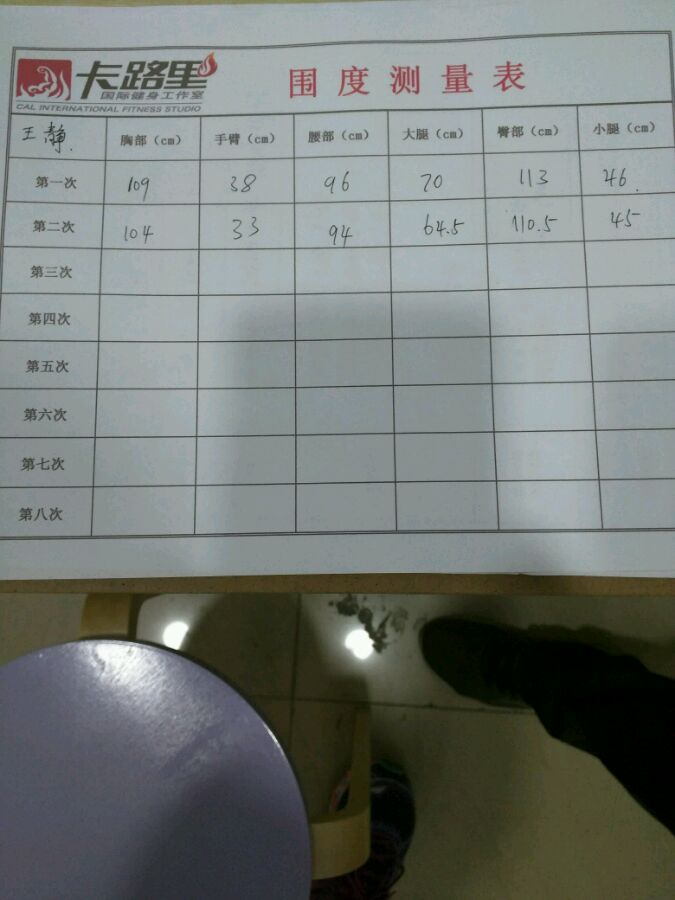 卡路里
国际健身工作室
CAL INTERNATIONAL FITNESS STUDIO
围度测量表
王静. 胸部（cm） 手臂（cm） 腰部（cm） 大腿（cm） 臀部（cm） 小腿（cm）
第一次 109 38 96 70 113 46.
第二次 104 33 94 64.5 110.5 45
第三次
第四次
第五次
第六次
第七次
第八次